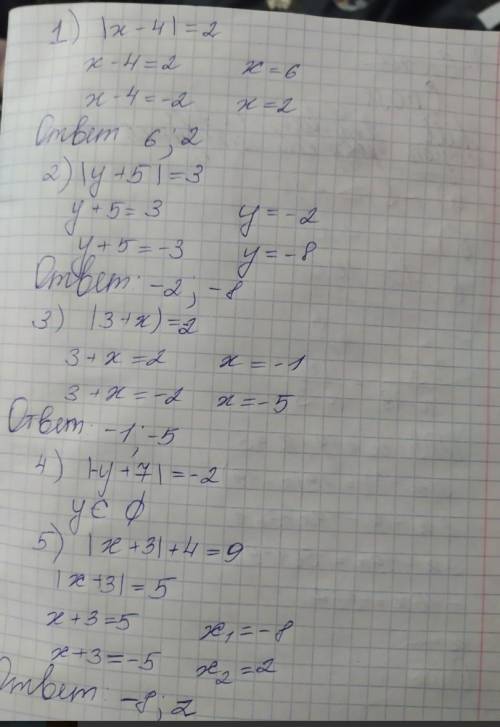 1) |x - 4| = 2
x - 4 = 2 x = 6
x - 4 = -2 x = 2
Ответ: 6; 2
2) |y + 5| = 3
y + 5 = 3 y = -2
y + 5 = -3 y = -8
Ответ: -2; -8
3) |3 + x) = 2
3 + x = 2 x = -1
3 + x = -2 x = -5
Ответ: -1; -5
4) |-y + 7| = -2
y ∈ ∅
5) |x + 3| + 4 = 9
|x + 3| = 5
x + 3 = 5 x₁ = -8
x + 3 = -5 x₂ = 2
Ответ: -8; 2